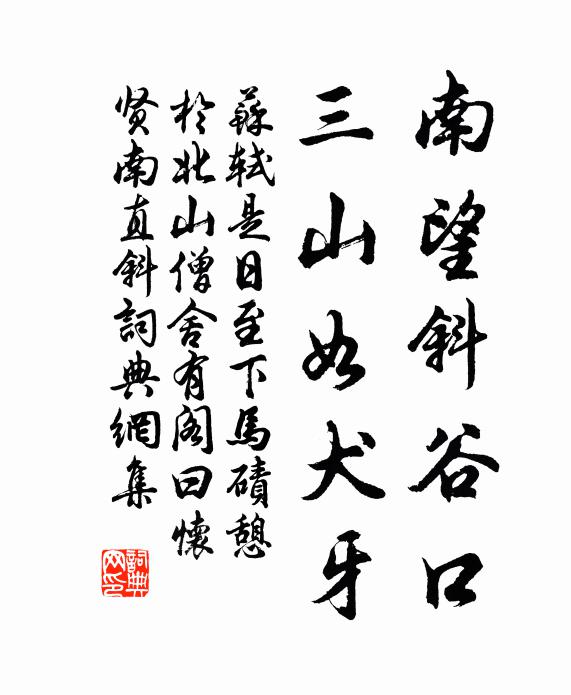 南望斜谷口
三山如犬牙
蘇軾是日至下馬磧憩
於北山僧舍有阁曰懷
贤南直斜詞典網集
詞典網印